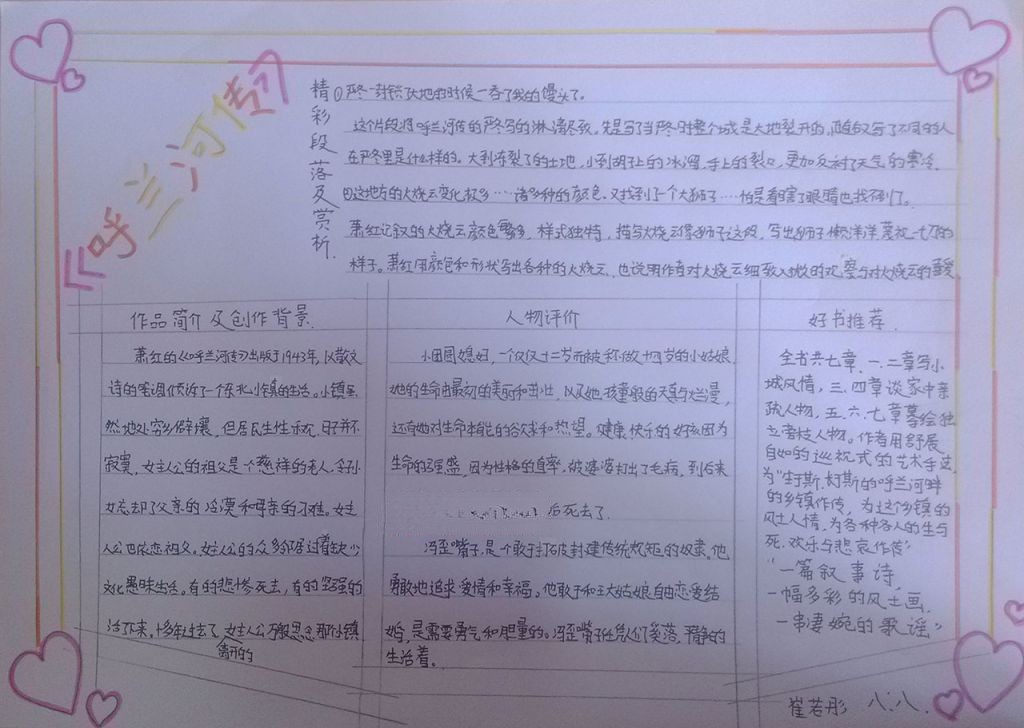 《呼兰河传》
精彩段落及赏析
①严冬一封锁了大地的时候一吞了我的馒头了。
这个片段将呼兰河传的严冬写的淋漓尽致。先是写了当严冬时整个城是大地裂开的,随即又写了不同的人
在严冬里是什么样的。大到冻裂了的土地,小到胡子上的冰溜,手上的裂口,更加反衬了天气的寒冷。
②这地方的火烧云变化极多……诸多种的颜色。又找到了一个大狮子……怕是看瞎了眼睛也找不到了。
萧红记叙的火烧云颜色繁多,样式独特,描写火烧云像狮子这段,写出狮子懒洋洋,蔑视一切的
样子。萧红用颜色和形状写出各种的火烧云,也说明作者对火烧云细致入微的观察与对火烧云的喜爱
作品简介及创作背景
萧红的《呼兰河传》出版于1943年,以散文
诗的笔调倾诉了一个东北小镇的生活。小镇虽
然地处穷乡僻壤,但居民生性乐观,日子并不
寂寞,女主人公的祖父是个慈祥的老人,令孙
女忘却了父亲的冷漠和母亲的刁难。女主
人公也依恋祖父。女主人公的众多邻居过着缺少
文化愚昧生活。有的悲惨死去,有的坚强的
活下来。十多年过去了,女主人公万般思念那小镇
离开的
人物评价
小团圆媳妇,一个仅仅十二岁而被称做十四岁的小姑娘,
她的生命由最初的美丽和茁壮,以及她孩童般的天真与烂漫,
还有她对生命本能的渴求和热望。健康、快乐的好孩因为
生命的强盛,因为性格的直率,被婆婆打出了毛病,到后来
后死去了。
冯歪嘴子,是个敢于打破封建传统规矩的奴隶。他
勇敢地追求爱情和幸福。他敢于和王大姑娘自由恋爱结
婚,是需要勇气和胆量的。冯歪嘴子任凭人们奚落、平静的
生活着。
好书推荐
全书共七章,一、二章写小
城风情,三、四章谈家中亲
疏人物,五、六、七章摹绘独
立旁枝人物。作者用舒展
自如的巡视式的艺术手法,
为"生于斯,好斯的呼兰河畔
的乡镇作传,为这个乡镇的
风土人情,为各种各人的生与
死、欢乐与悲哀作传"
"一篇叙事诗,
一幅多彩的风土画,
一串凄婉的歌谣"
崔若彤 八.八.